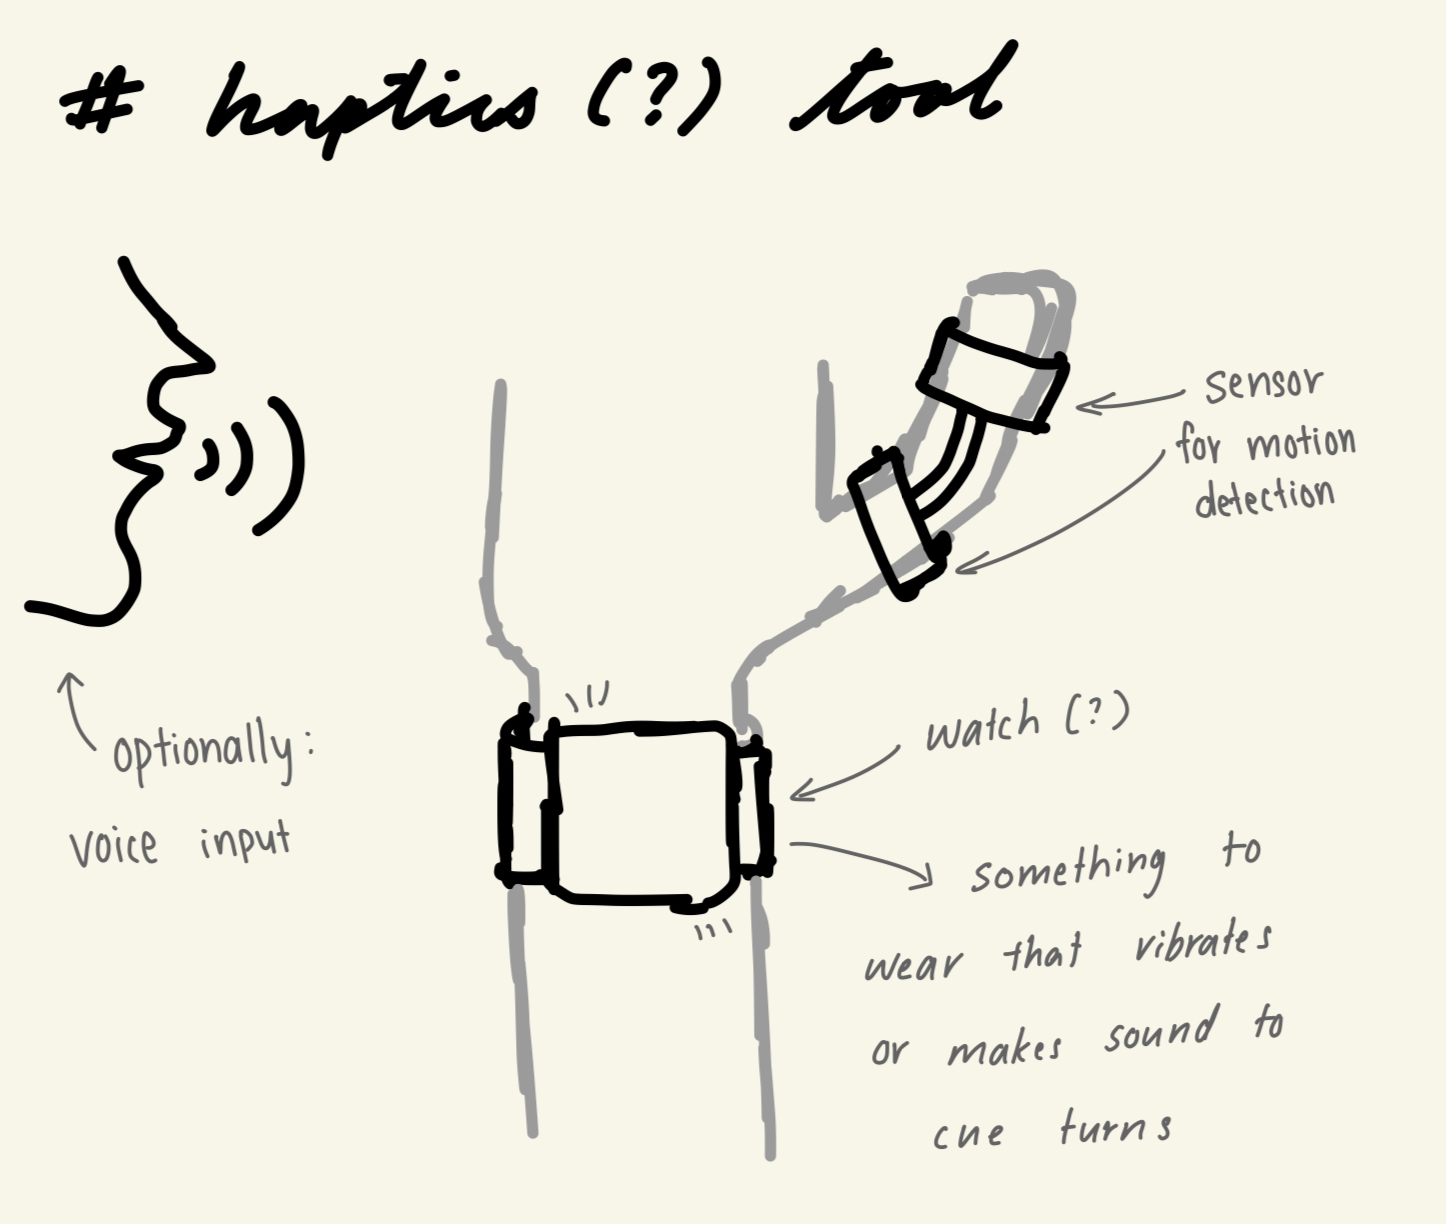 # haptics (?) tool
sensor
for motion
detection
optionally:
voice input
watch (?)
something to
wear that vibrates
or makes sound to
cue turns